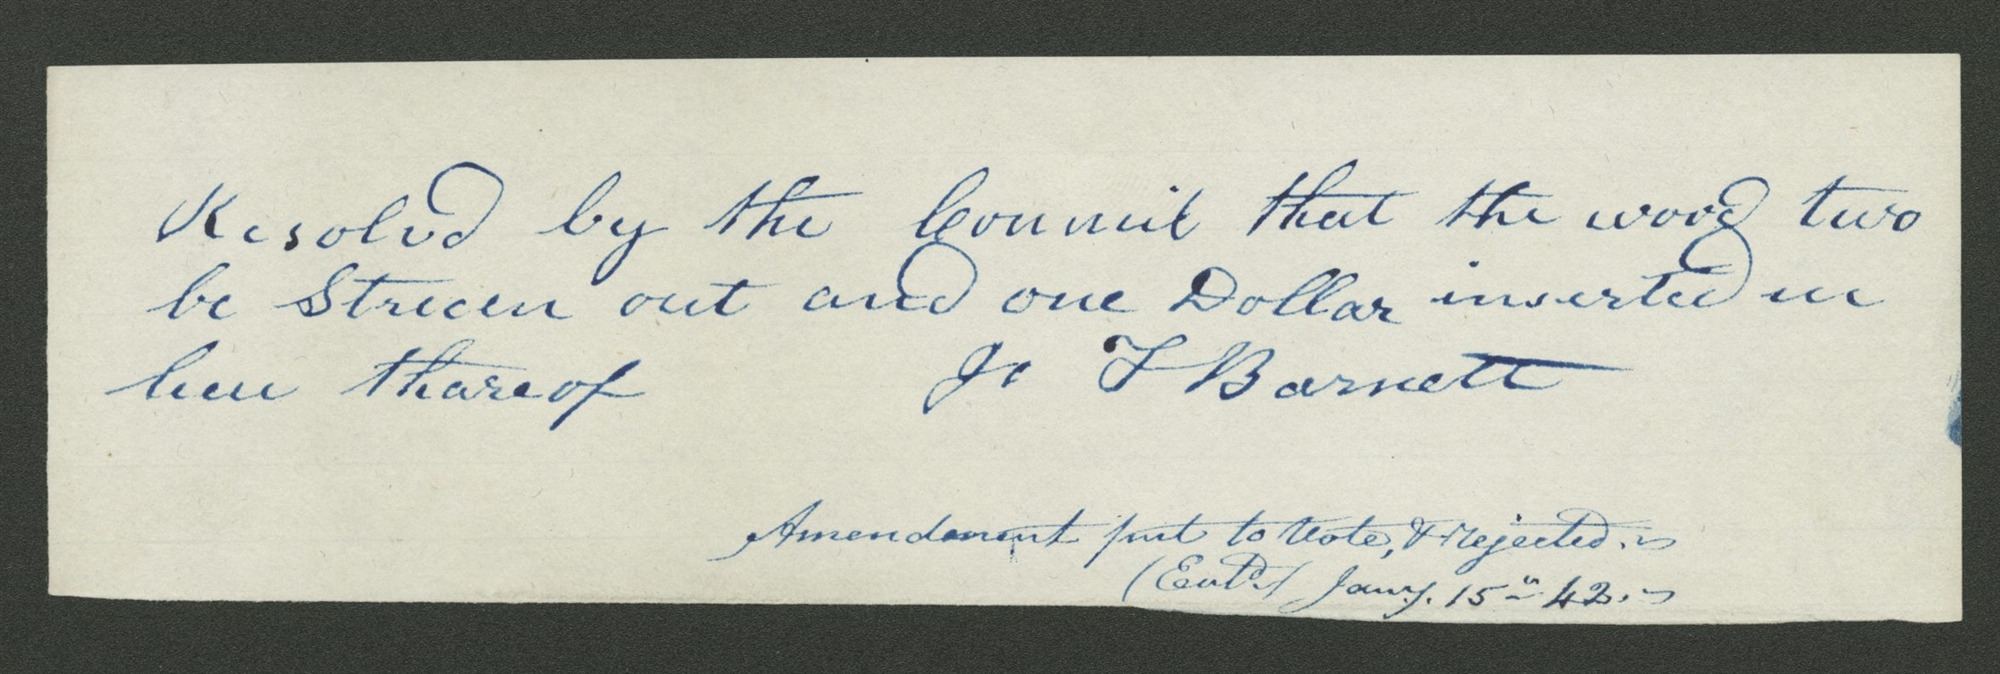 Resolvd by the Council that the word two
be Stricen out and one Dollar inserted in
lieu thareof Jo F Barnett
Amendment put to Vote, & rejected.
(Entd.) Jany. 15" 42.